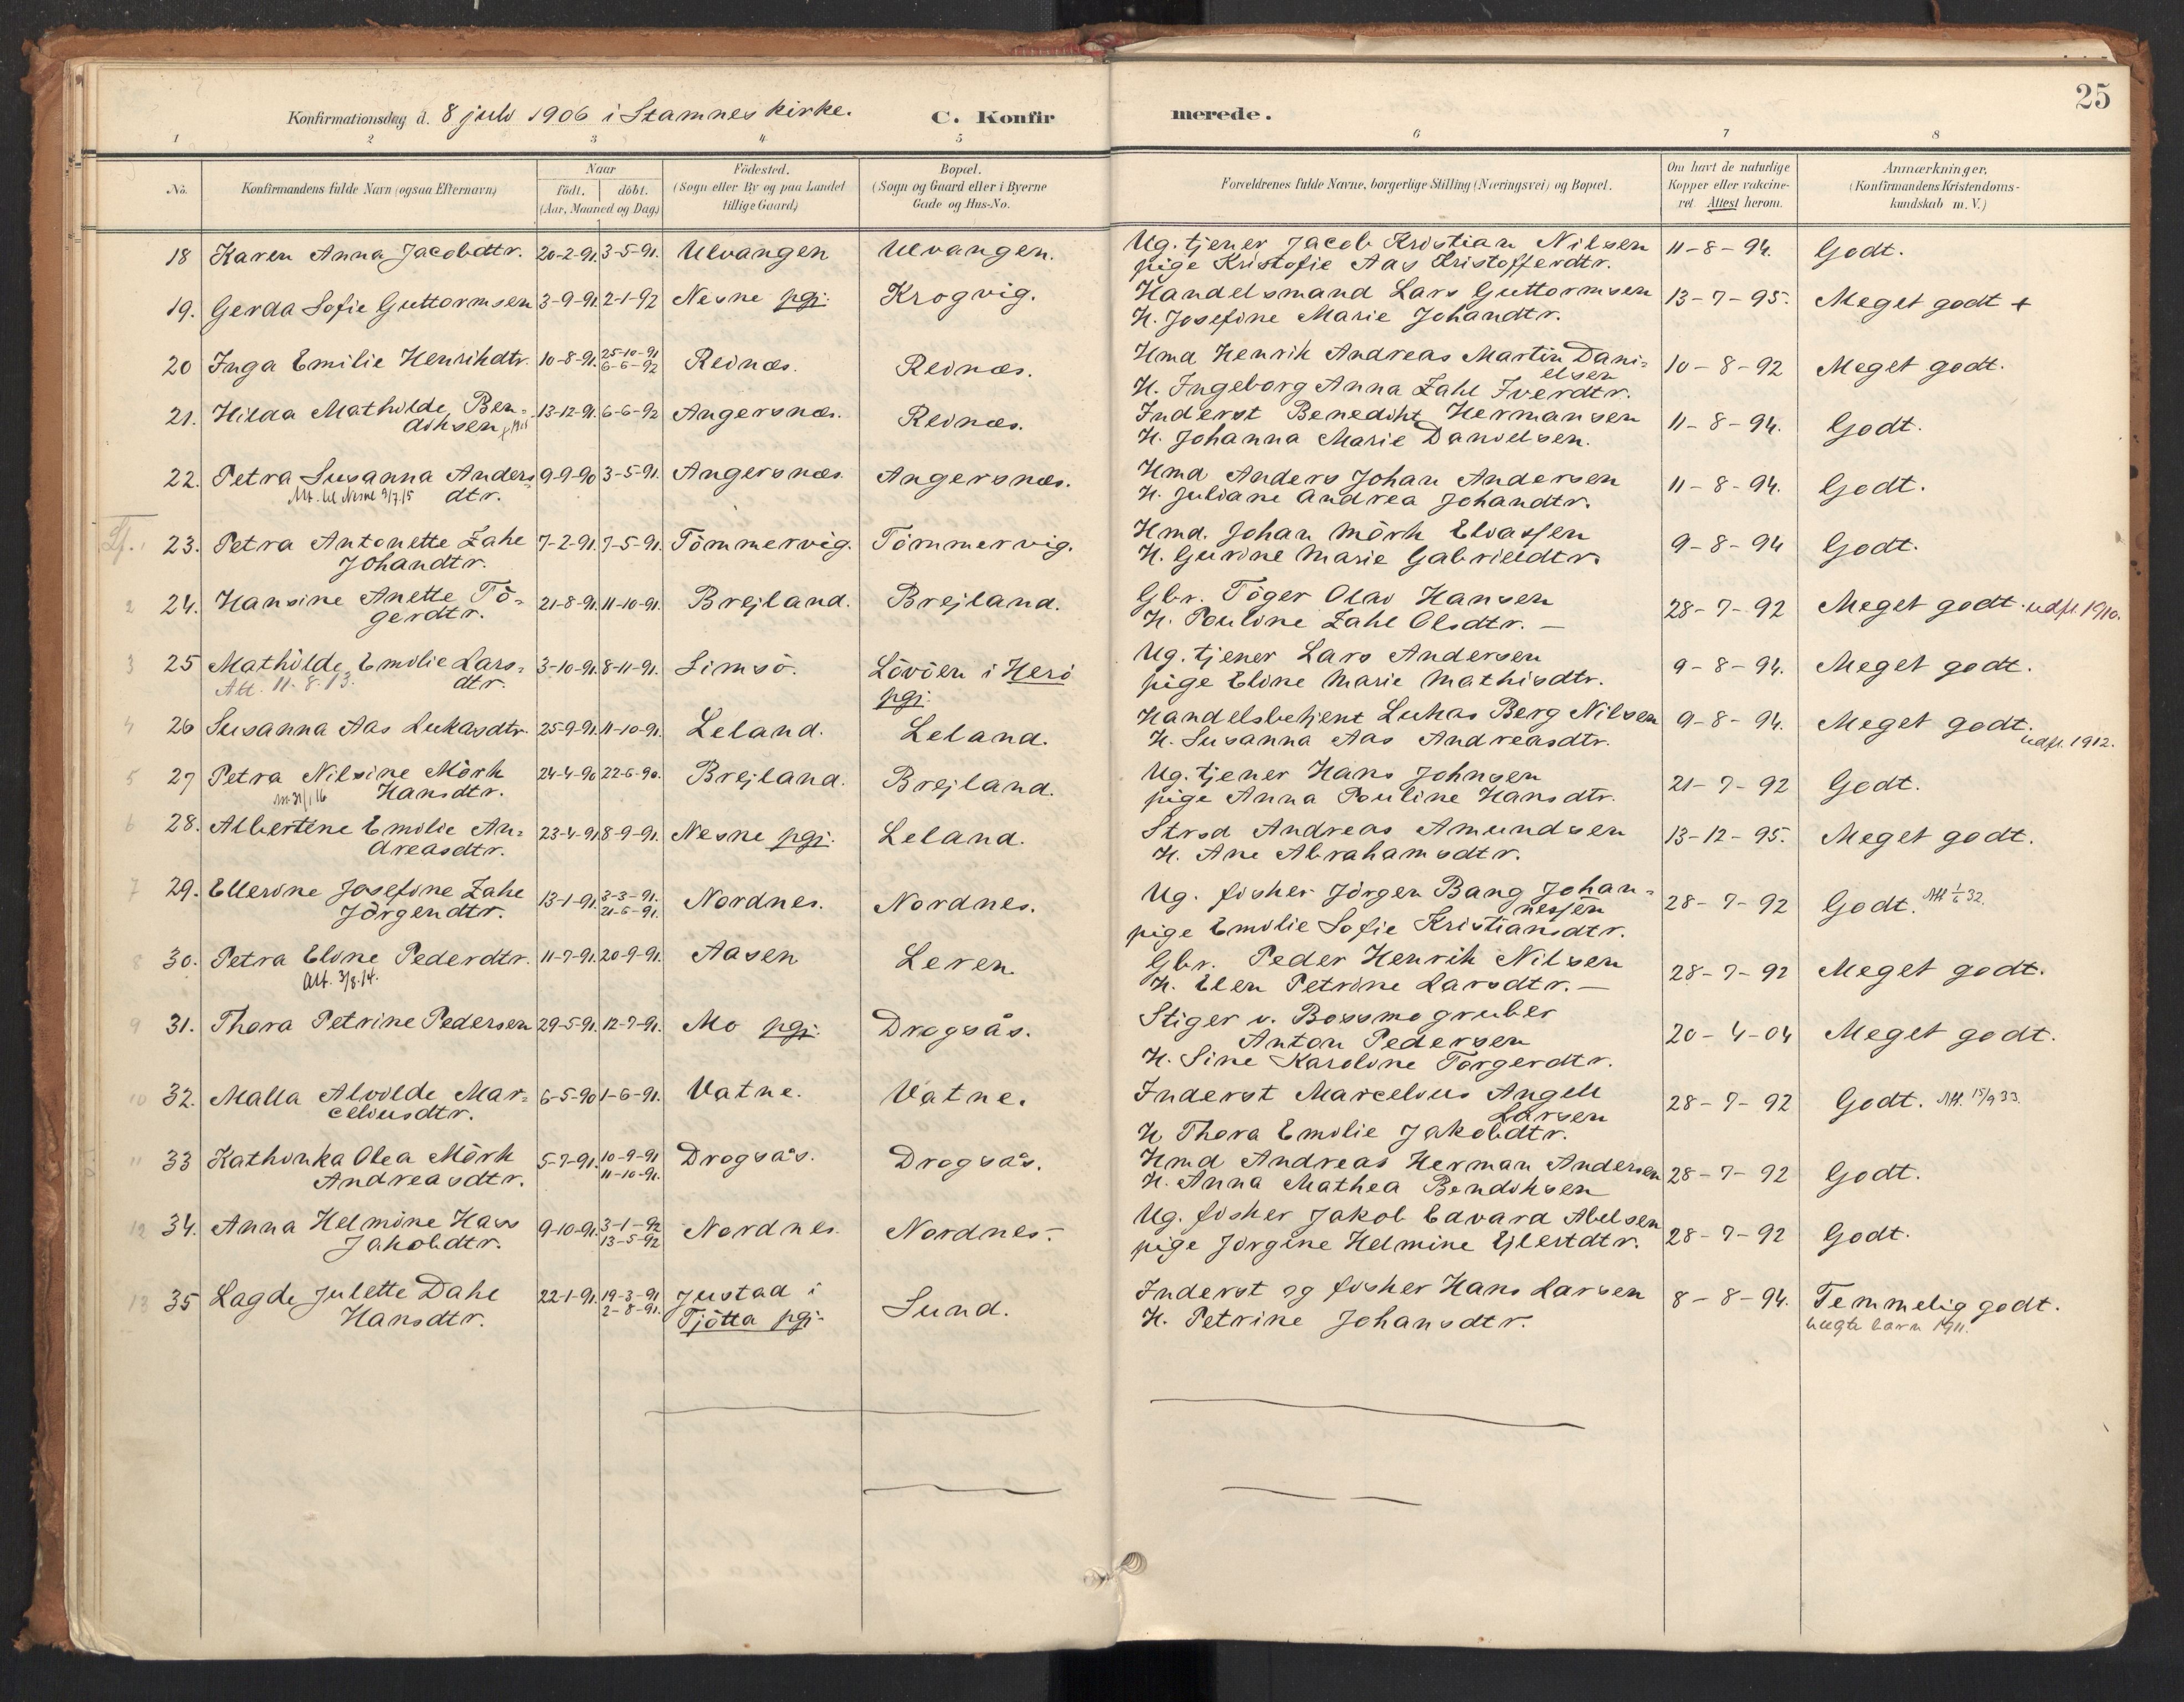 25
Konfirmationsdag d. 8 juli 1906 i Stamnes kirke. C. Konfirmerede.
1 2 3 4 5 6 7 8
No. Konfirmandens fulde Navn (ogsaa Efternavn) Naar født. døbt. (Aar, Maaned og Dag) Födested. (Sogn eller By og paa Landet tillige Gaard) Bopæl. (Sogn og Gaard eller i Byerne Gade og Hus-No. Forældrenes fulde Navne, borgerlige Stilling (Næringsvei) og Bopæl. Om havt de naturlige Kopper eller vakcineret. Attest herom. Anmærkninger, (Konfirmandens Kristendomskundskab m. V.)
18 Karen Anna Jacobdtr. 20-2-91. 3-5-91. Ulvangen Ulvangen. Ug. tjener Jacob Kristian Nilsen 11-8-94. Godt.
pige Kristofie Aas Kristofferdtr.
19. Gerda Sofie Guttormsen 3-9-91. 2-1-92 Nesne pgj. Krogvig. Handelsmand Lars Guttormsen 13-7-95. Meget godt +
H. Josefine Marie Johandtr.
20 Inga Emilie Henrikdtr. 10-8-91. 25-10-91 6-6-92 Reinæs. Reinæs. Hmd Henrik Andreas Martin Dani- 10-8-92 Meget godt.
elsen
H. Ingeborg Anna Zahl Iverdtr.
21. Hilda Mathilde Ben- 13-12-91. 6-6-92 Angersnæs. Reinæs. Inderst Benedikt Hermansen 11-8-94. Godt.
diksen H. Johanna Marie Danielsen.
22. Petra Susanna Anders- 9-9-90 3-5-91. Angersnæs. Angersnæs. Hmd Anders Johan Andersen 11-8-94. Godt.
Att. til Nesne 9/7.15 dtr. H. Juliane Andrea Johandtr.
23. Petra Antonette Zahl 7-2-91. 7-5-91. Tömmervig. Tömmervig. Hmd. Johan Mörk Eliassen 9-8-94 Godt.
Johandtr. H. Gurine Marie Gabrieldtr.
2 24. Hansine Anette Tö- 21-8-91. 11-10-91. Brejland. Brejland. Gbr. Töger Olav Hansen 28-7-92 Meget godt. udfl. 1910.
gerdtr. H. Pouline Zahl Olsdtr. —
3 25 Mathilde Emilie Lars- 3-10-91. 8-11-91. Limsö. Lövöen i Herö pgj. Ug. tjener Lars Andersen 9-8-94. Meget godt.
Att. 11.8.13. dtr. pige Eline Marie Mathisdtr.
4 26 Susanna Aas Lukasdtr. 25-9-91. 11-10-91. Leland. Leland. Handelsbetjent Lukas Berg Nilsen 9-8-94. Meget godt.
H. Susanna Aas Andreasdtr. udfl. 1912.
5 27 Petra Nilsine Mörk 24-4-90 22-6-90. Brejland. Brejland. Ug. tjener Hans Johnsen 21-7-92 Godt.
Hansdtr. pige Anna Pouline Hansdtr.
6 28. Albertine Emilie An- 23-4-91. 8-9-91. Nesne pgj. Leland. Strsd Andreas Amundsen 13-12-95. Meget godt.
dreasdtr. H. Ane Abrahamsdtr.
7 29. Ellerine Josefine Zahl 13-1-91. 3-3-91. 21-6-91. Nordnes. Nordnes. Ug. fisker Jörgen Bang Johan- 28-7-92 Godt. Att 1/6 32.
Jörgendtr. nesjen
pige Emilie Sofie Kristiansdtr.
8 30. Petra Eline Pederdtr. 11-7-91. 20-9-91. Aasen Leren. Gbr. Peder Henrik Nilsen 28-7-92 Meget godt.
Att. 3/8.14. H. Elen Petrine Larsdtr. —
9 31. Thora Petrine Pedersen 29-5-91. 12-7-91. Mo pgj. Drogsås. Stiger v. Bossmo gruber 20-4-04 Meget godt.
Anton Pedersen
H. Sine Karoline Torgerdtr.
10 32. Malla Alvilde Mar- 6-5-90 1-6-91. Vatne. Vatne. Inderst Marcelius Angell 28-7-92 Godt. Att. 15/9 33.
celiusdtr. Larsen
H. Thora Emilie Jakobdtr.
11 33 Kathinka Olea Mörk 5-7-91. 10-9-91 11-10-91. Drogsås. Drogsås. Hmd Andreas Herman Andersen 28-7-92 Godt.
Andreasdtr. H. Anna Mathea Bendiksen
12 34. Anna Helmine Hass 9-10-91. 3-1-92 13-5-92 Nordnes. Nordnes. Ug. fisker Jakob Edvard Abelsen 28-7-92 Godt.
Jakobdtr. pige Jörgine Helmine Ejlertdtr.
13 35 Lagde Julette Dahl 22-1-91. 19-3-91 2-8-91. Justad i Tjötta pgj. Sund. Inderst og fisker Hans Larsen 8-8-94. Temmelig godt.
Hansdtr. H. Petrine Johansdtr. uegte barn 1911.